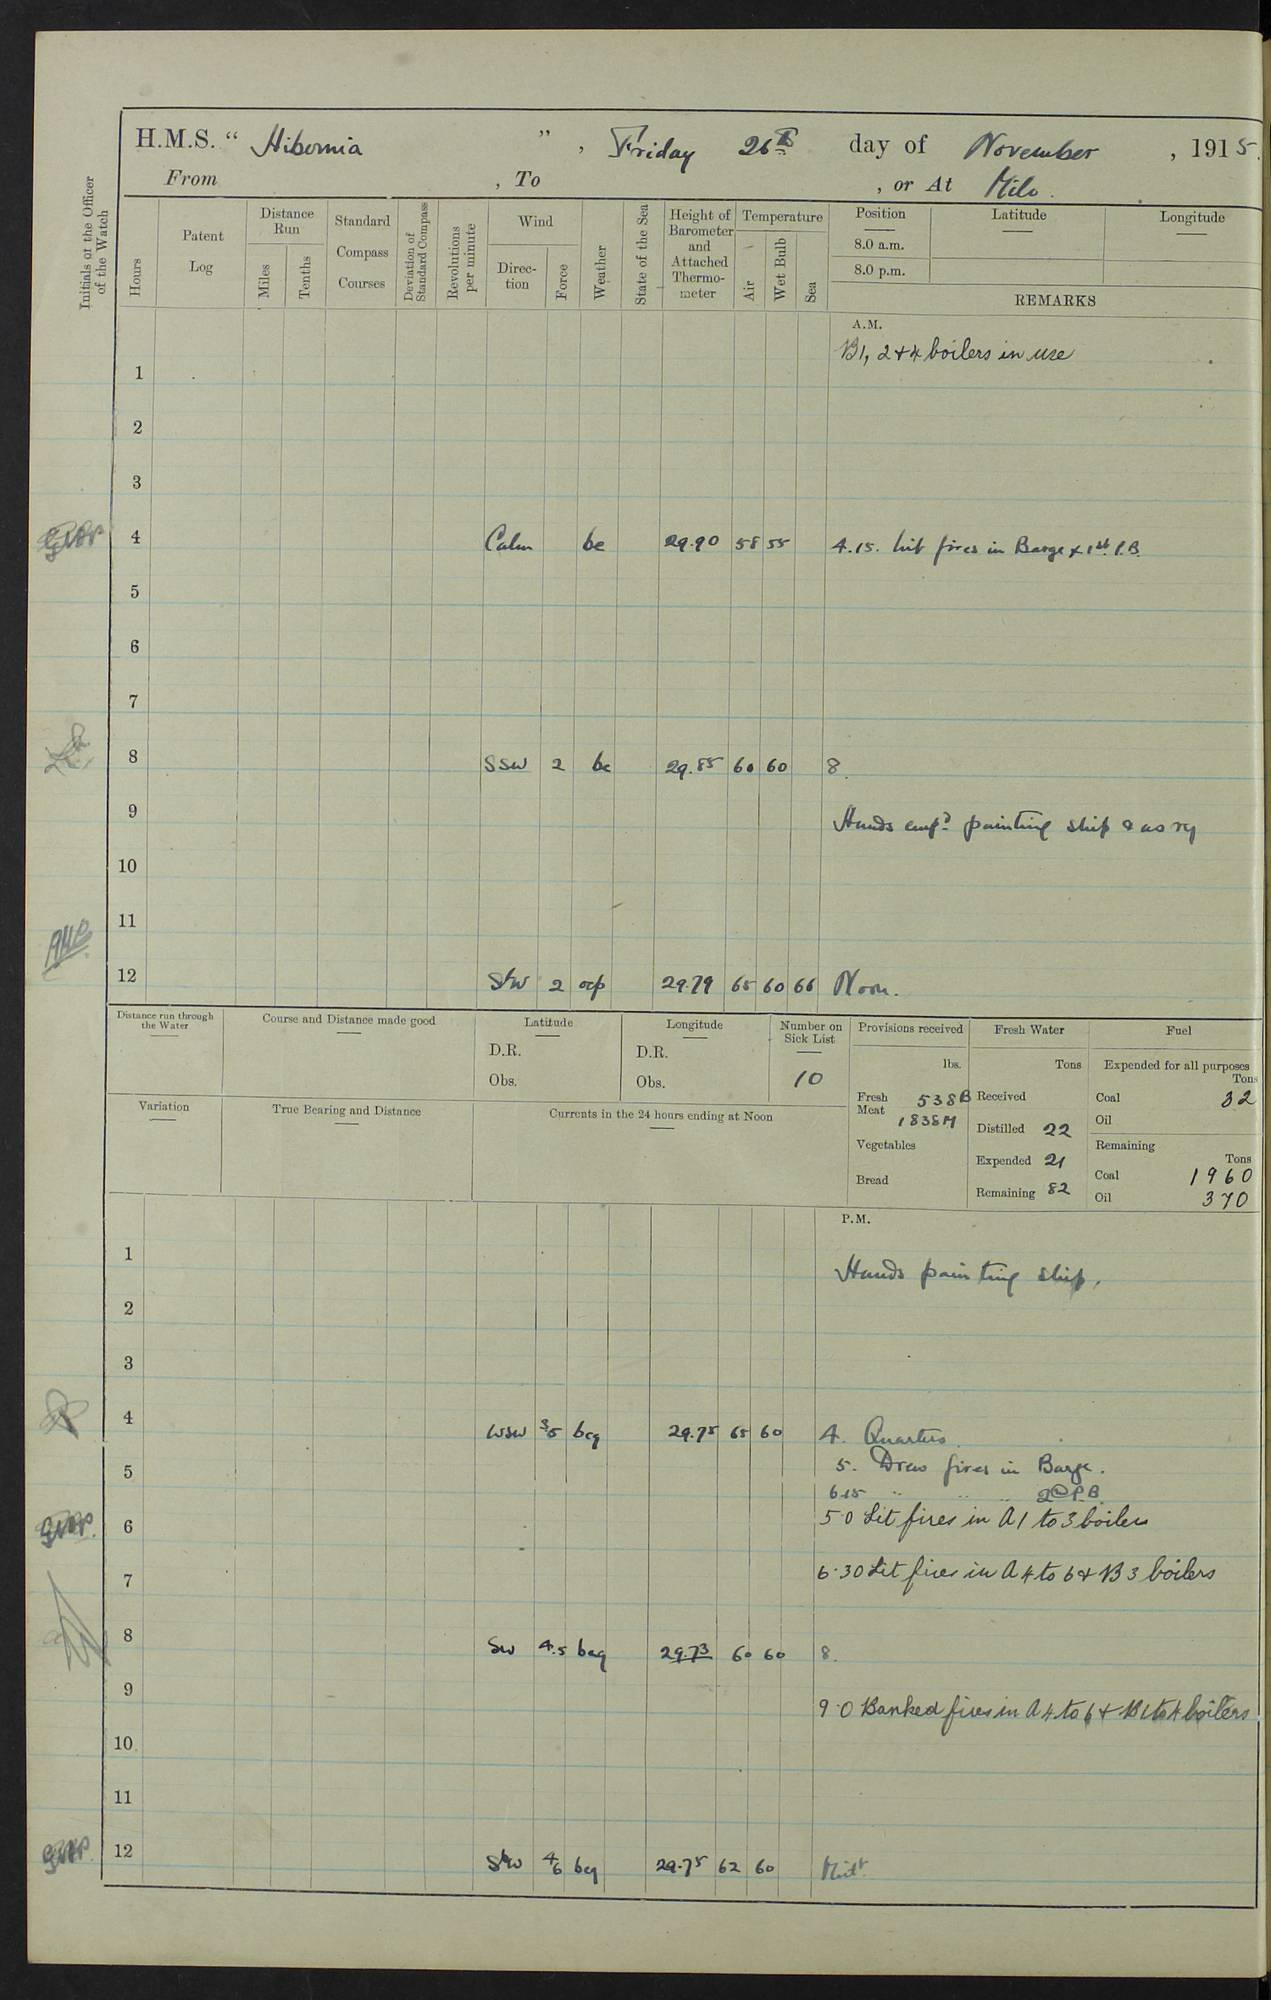 H.M.S. “ Hibernia ” , Friday 26th day of November , 1915.
From , To , or At Milo.
Initials of the Officer of the Watch
Hours
Patent Log
Distance Run
Miles
Tenths
Standard Compass Courses
Deviation of Standard Compass
Revolutions per minute
Wind
Direc-tion
Force
Weather
State of the Sea
Height of Barometer and Attached Thermo-meter
Temperature
Air
Wet Bulb
Sea
Position
8.0 a.m.
8.0 p.m.
Latitude
Longitude
REMARKS
A.M.
B1, 2 & 4 boilers in use
1
2
3
4 Calm bc 29.90 58 55 4.15. Lit fires in Barge & 1st P.B.
5
6
7
8 SSW 2 bc 29.85 60 60 8.
9 Hands emp'd painting ship & as rq
10
11
12 SbW 2 ocp 29.79 65 60 66 Noon.
Distance run through the Water
Course and Distance made good
Latitude
D.R.
Obs.
Longitude
D.R.
Obs.
Number on Sick List
10
Variation
True Bearing and Distance
Currents in the 24 hours ending at Noon
Provisions received
lbs.
Fresh Meat 538 B
1838 M
Vegetables
Bread
Fresh Water
Tons
Received
Distilled 22
Expended 21
Remaining 82
Fuel
Expended for all purposes
Tons
Coal 32
Oil
Remaining
Tons
Coal 1960
Oil 370
P.M.
1 Hands painting ship.
2
3
4 WSW 3/5 bcq 29.75 65 60 4. Quarters.
5 5. Drew fires in Barge.
6.15 " " " 2nd P.B.
6 5.0 Lit fires in A 1 to 3 boilers
7 6.30 Lit fires in A 4 to 6 & B 3 boilers
8 SW 4.5 bcq 29.73 60 60 8.
9 9.0 Banked fires in A 4 to 6 & B 1 to 4 boilers
10
11
12 SbW 4/6 bcq 29.75 62 60 Midt.